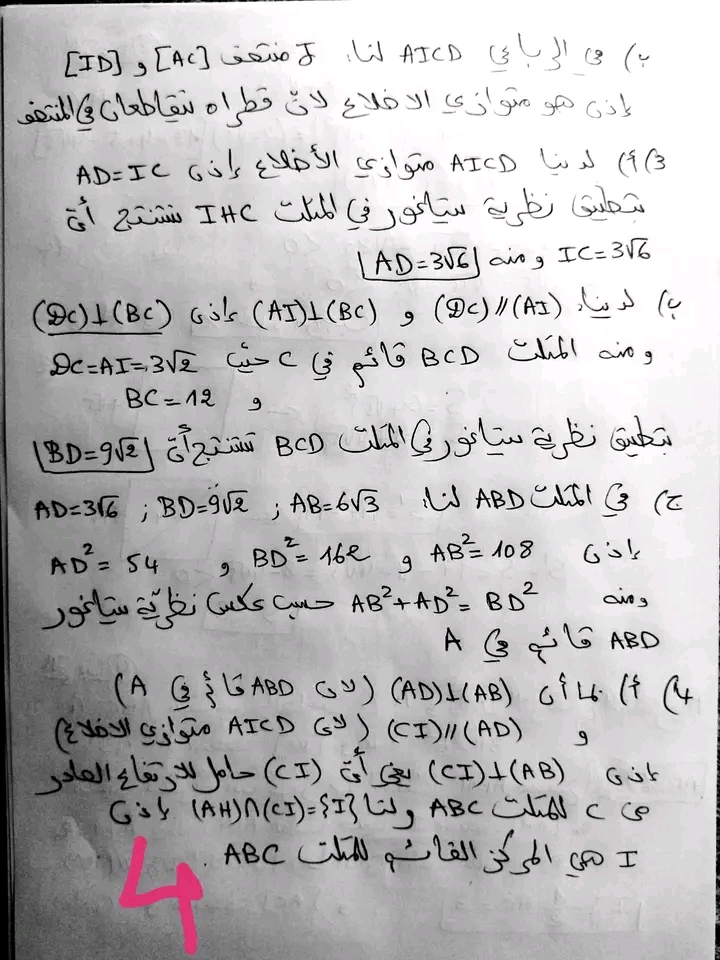 ب) في الرباعي AICD لنا: J منتصف [AC] و [ID]
إذن هو متوازي الاضلاع لأنّ قطراه يتقاطعان في المنتصف
3) أ) لدينا AICD متوازي الأضلاع إذن AD=IC
بتطبيق نظرية بيتاغور في المثلث IHC نستنتج أنّ
IC=3√6 ومنه AD=3√6
ب) لدينا: (DC)//(AI) و (AI)⊥(BC) إذن (DC)⊥(BC)
ومنه المثلث BCD قائم في C حيث DC=AI=3√2
و BC=12
بتطبيق نظرية بيتاغور في المثلث BCD نستنتج أنّ BD=9√2
ج) في المثلث ABD لنا: AB=6√3 ; BD=9√2 ; AD=3√6
إذن AB²=108 و BD²=162 و AD²=54
ومنه AB²+AD²=BD² حسب عكس نظريّة بيتاغور
ABD قائم في A
4) أ) بما أن (AD)⊥(AB) (لأن ABD قائم في A)
و (CI)//(AD) (لأن AICD متوازي الاضلاع)
إذن (CI)⊥(AB) يعني أنّ (CI) حامل للارتفاع الصادر
من C للمثلث ABC ولنا (AH)∩(CI)={I} إذن
I هي المركز القائم للمثلث ABC.
4